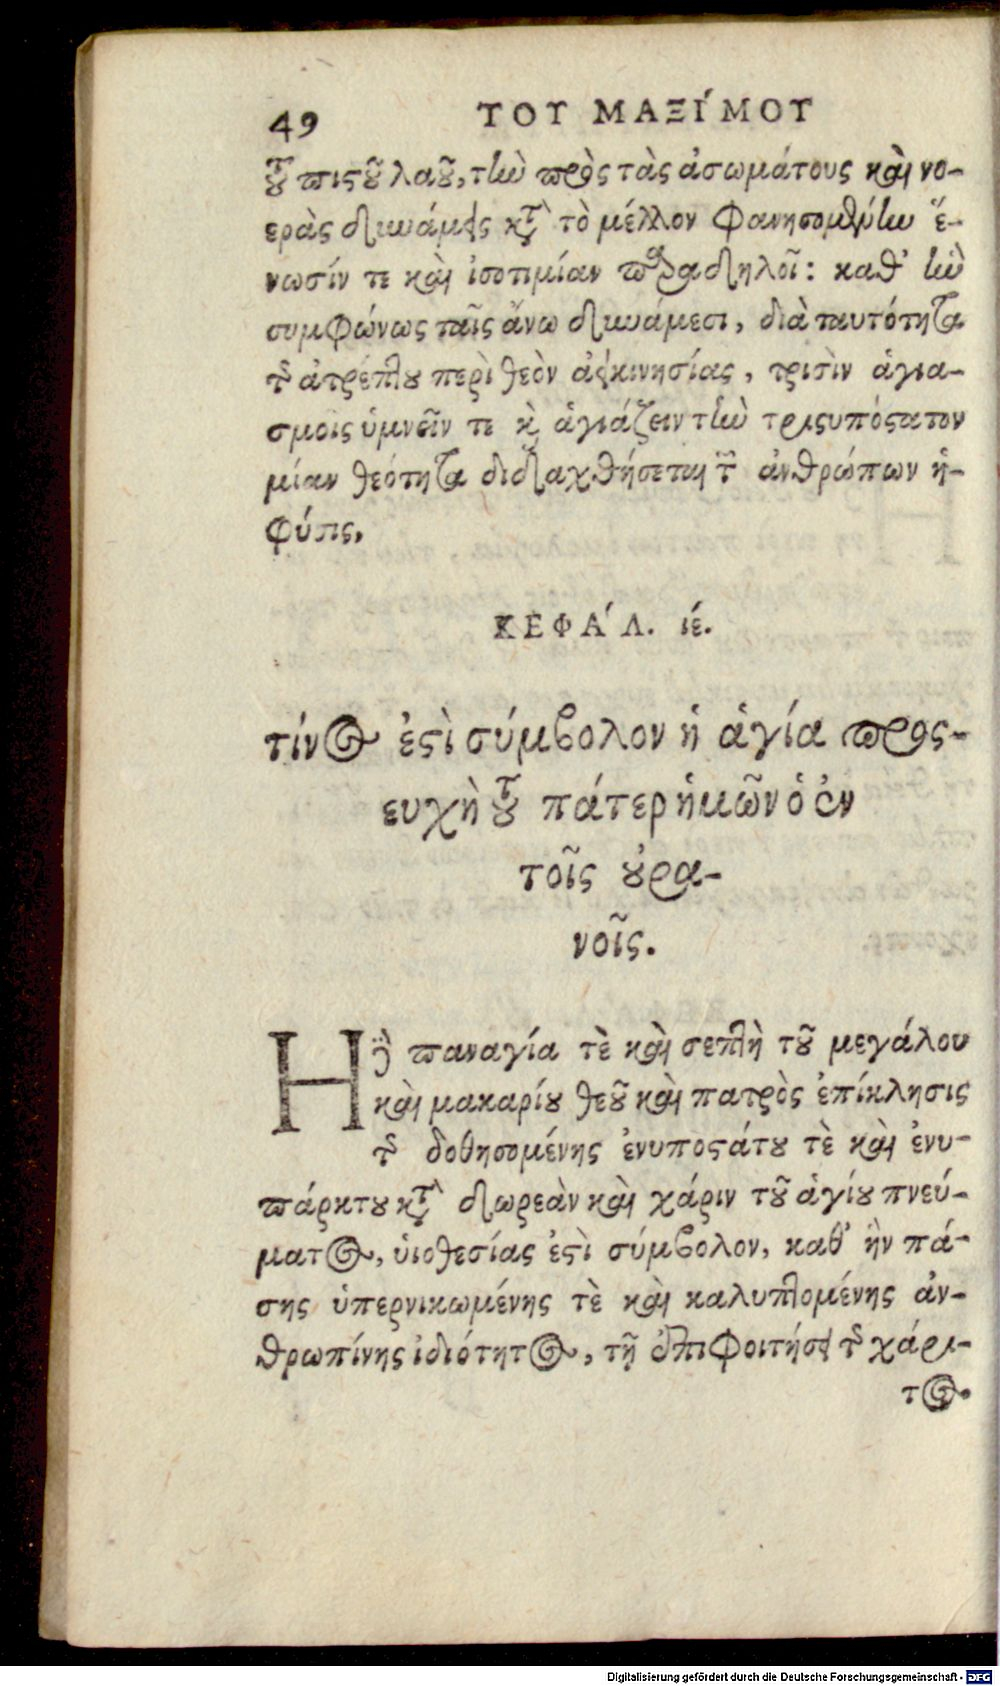 49 ΤΟΥ ΜΑΞΊΜΟΥ
τοῦ πιστοῦ λαοῦ, τὴν πρὸς τὰς ἀσωμάτους καὶ νο-
ερὰς δυνάμεις κατὰ τὸ μέλλον φανησομένην ἕ-
νωσίν τε καὶ ἰσοτιμίαν παραδηλοῖ: καθ' ἣν
συμφώνως ταῖς ἄνω δυνάμεσι, διὰ ταυτότητα
τῆς ἀτρέπτου περὶ θεὸν ἀεικινησίας, τρισὶν ἁγια-
σμοῖς ὑμνεῖν τε καὶ ἁγιάζειν τὴν τρισυπόστατον
μίαν θεότητα διδαχθήσεται τῶν ἀνθρώπων ἡ
φύσις.
ΚΕΦΆΛ. ιέ.
τίνος ἐστὶ σύμβολον ἡ ἁγία προς-
ευχὴ τοῦ πάτερ ἡμῶν ὁ ἐν
τοῖς οὐρα-
νοῖς.
Ἡ δὲ παναγία τὲ καὶ σεπτὴ τοῦ μεγάλου
καὶ μακαρίου θεοῦ καὶ πατρὸς ἐπίκλησις
τῆς δοθησομένης ἐνυποστάτου τὲ καὶ ἐνυ-
πάρκτου κατὰ δωρεὰν καὶ χάριν τοῦ ἁγίου πνεύ-
ματος, υἱοθεσίας ἐστὶ σύμβολον, καθ' ἣν πά-
σης ὑπερνικωμένης τὲ καὶ καλυπτομένης ἀν-
θρωπίνης ἰδιότητος, τῇ ἐπιφοιτήσει τῆς χάρι-
τος.
Digitalisierung gefördert durch die Deutsche Forschungsgemeinschaft - DFG